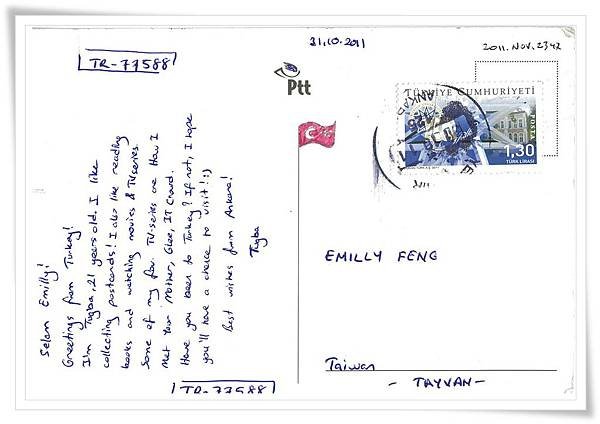 TR-77588
31.10.2011
2011.NOV.23 42
Ptt
TÜRKİYE CUMHURİYETİ
POSTA
1,30
TÜRK LİRASI
ANKARA
Selam Emilly!
Greetings from Turkey!
I'm Tugba, 21 years old. I like
collecting postcards! I also like reading
books and watching movies & TV series.
Some of my fav. TV-series are How I
Met Your Mother, Glee, IT Crowd.
Have you been to Turkey? If not, I hope
you'll have a chance to visit! :)
Best wishes from Ankara!
Tugba
TR-77588
EMILLY FENG
Taiwan
- TAYVAN -